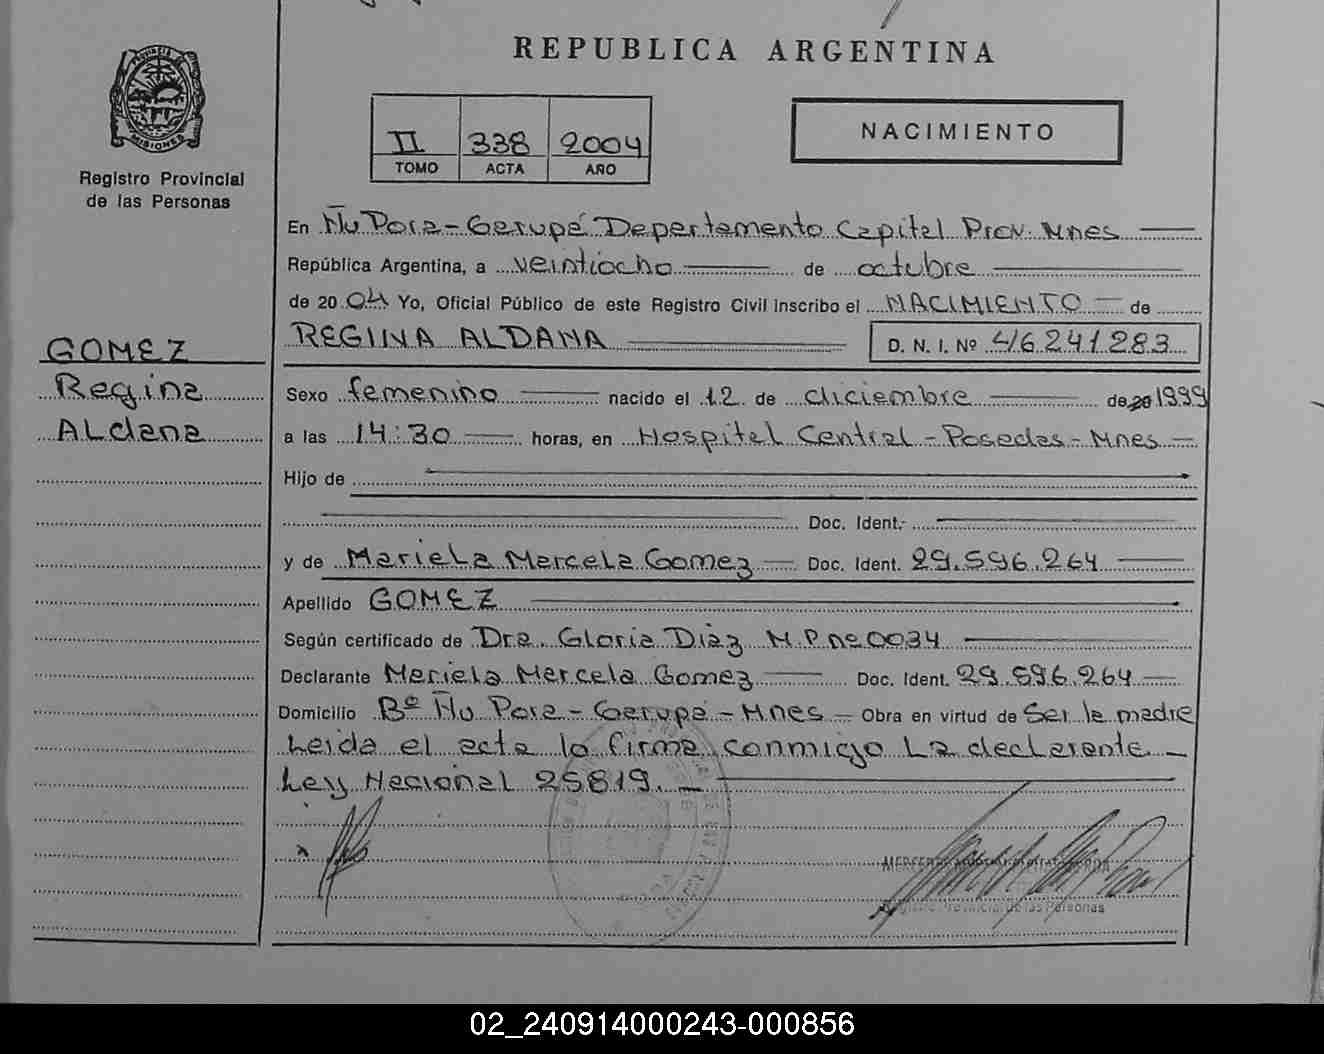 PROVINCIA DE
MISIONES
Registro Provincial
de las Personas
GOMEZ
Regina
ALdana
REPUBLICA ARGENTINA
II 338 2004
TOMO ACTA AÑO
NACIMIENTO
En Ñu Pora - Garupá Departamento Capital Prov. Mnes
República Argentina, a veintiocho de octubre
de 20 04 Yo, Oficial Público de este Registro Civil inscribo el NACIMIENTO de
REGINA ALDANA D. N. I. Nº 46241283
Sexo femenino nacido el 12 de diciembre de 20 1999
a las 14:30 horas, en Hospital Central - Posadas - Mnes
Hijo de
Doc. Ident.
y de Mariela Marcela Gomez Doc. Ident. 29.596.264
Apellido GOMEZ
Según certificado de Dra. Gloria Diàz M.P.nº 0034
Declarante Mariela Marcela Gomez Doc. Ident. 29.596.264
Domicilio Bº Ñu Pora - Garupá - Mnes Obra en virtud de Ser la madre
Leida el acta la firma conmigo La declarante
Ley Nacional 25819.
Registro Provincial de las Personas
02_240914000243-000856